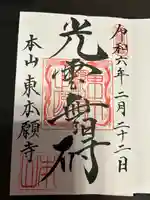 令和六年 二月二十二日
光雲無碍
本山 東本願寺